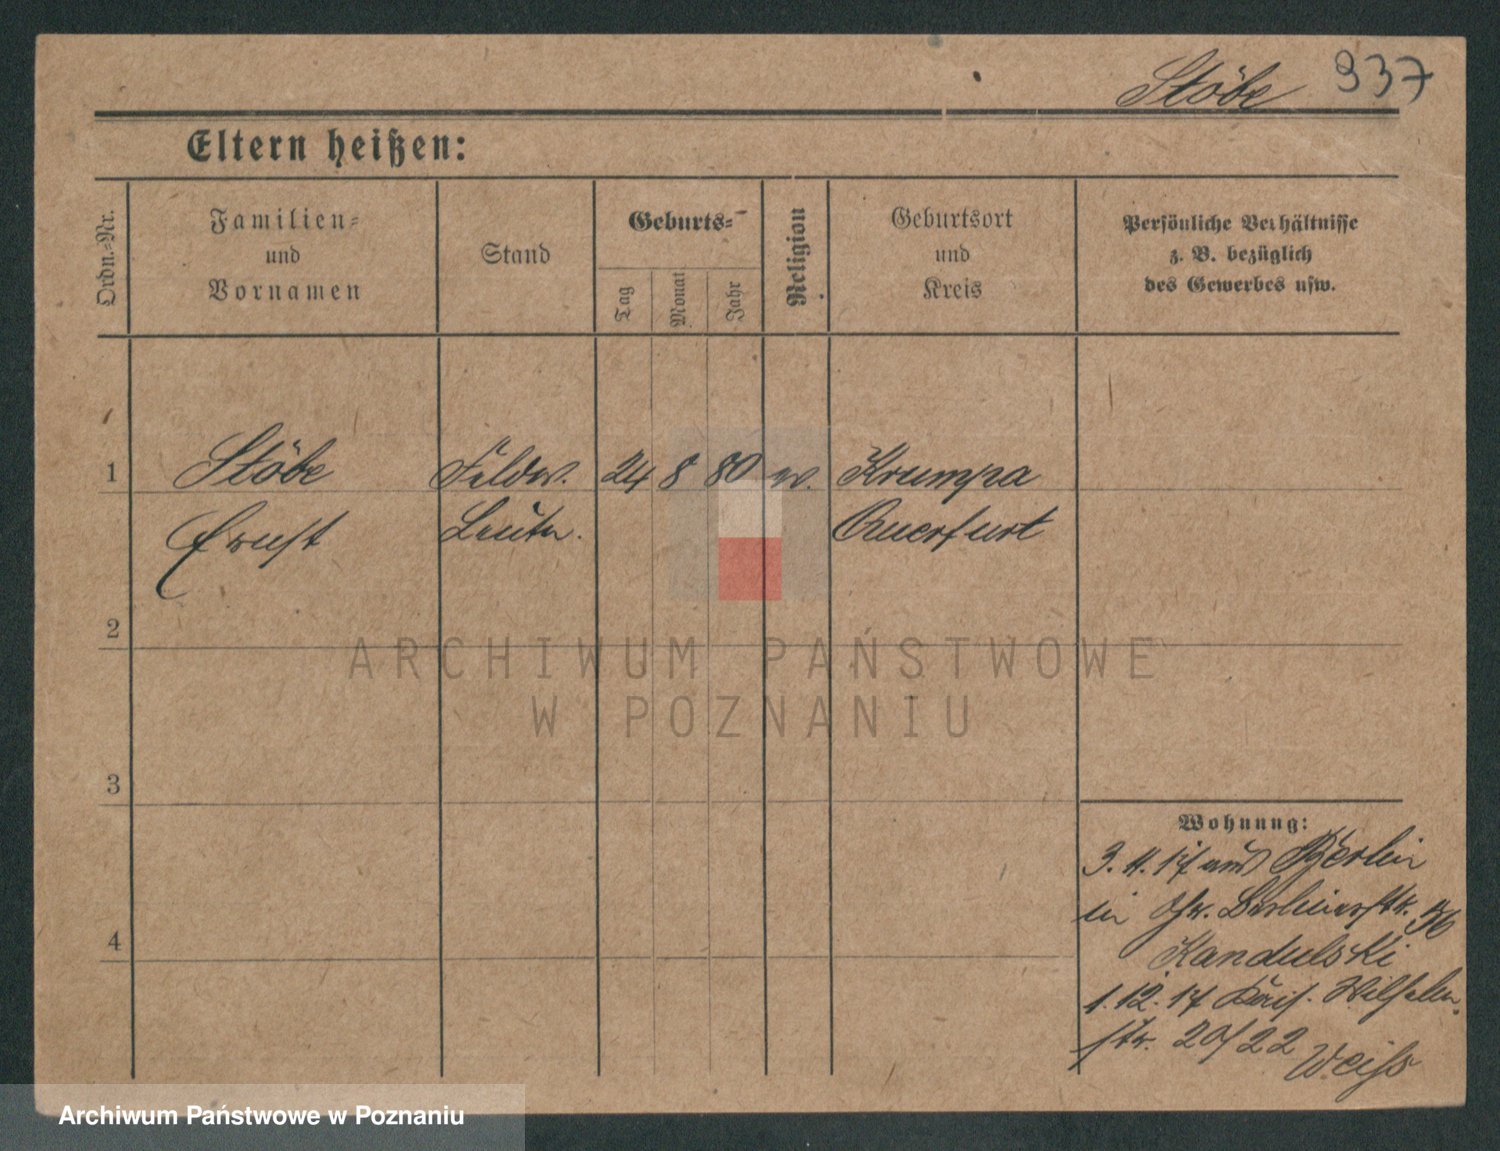 Stöbe 937
Eltern heißen:
Ordn.-Nr.
Familien-
und
Vornamen
Stand
Geburts-
Tag
Monat
Jahr
Religion
Geburtsort
und
Kreis
Persönliche Verhältnisse
z. B. bezüglich
des Gewerbes usw.
1 Stöbe Feldw. 24 8 80 Krumpa
Ernst Leutn. Querfurt
2
ARCHIWUM PAŃSTWOWE
W POZNANIU
3
Wohnung:
3. 11. 17 aus Berlin
in Berlinerstr.
4
Kandulski
1. 12. 17 Kais. Wilhelm
str. 20/22
Weiss
Archiwum Państwowe w Poznaniu